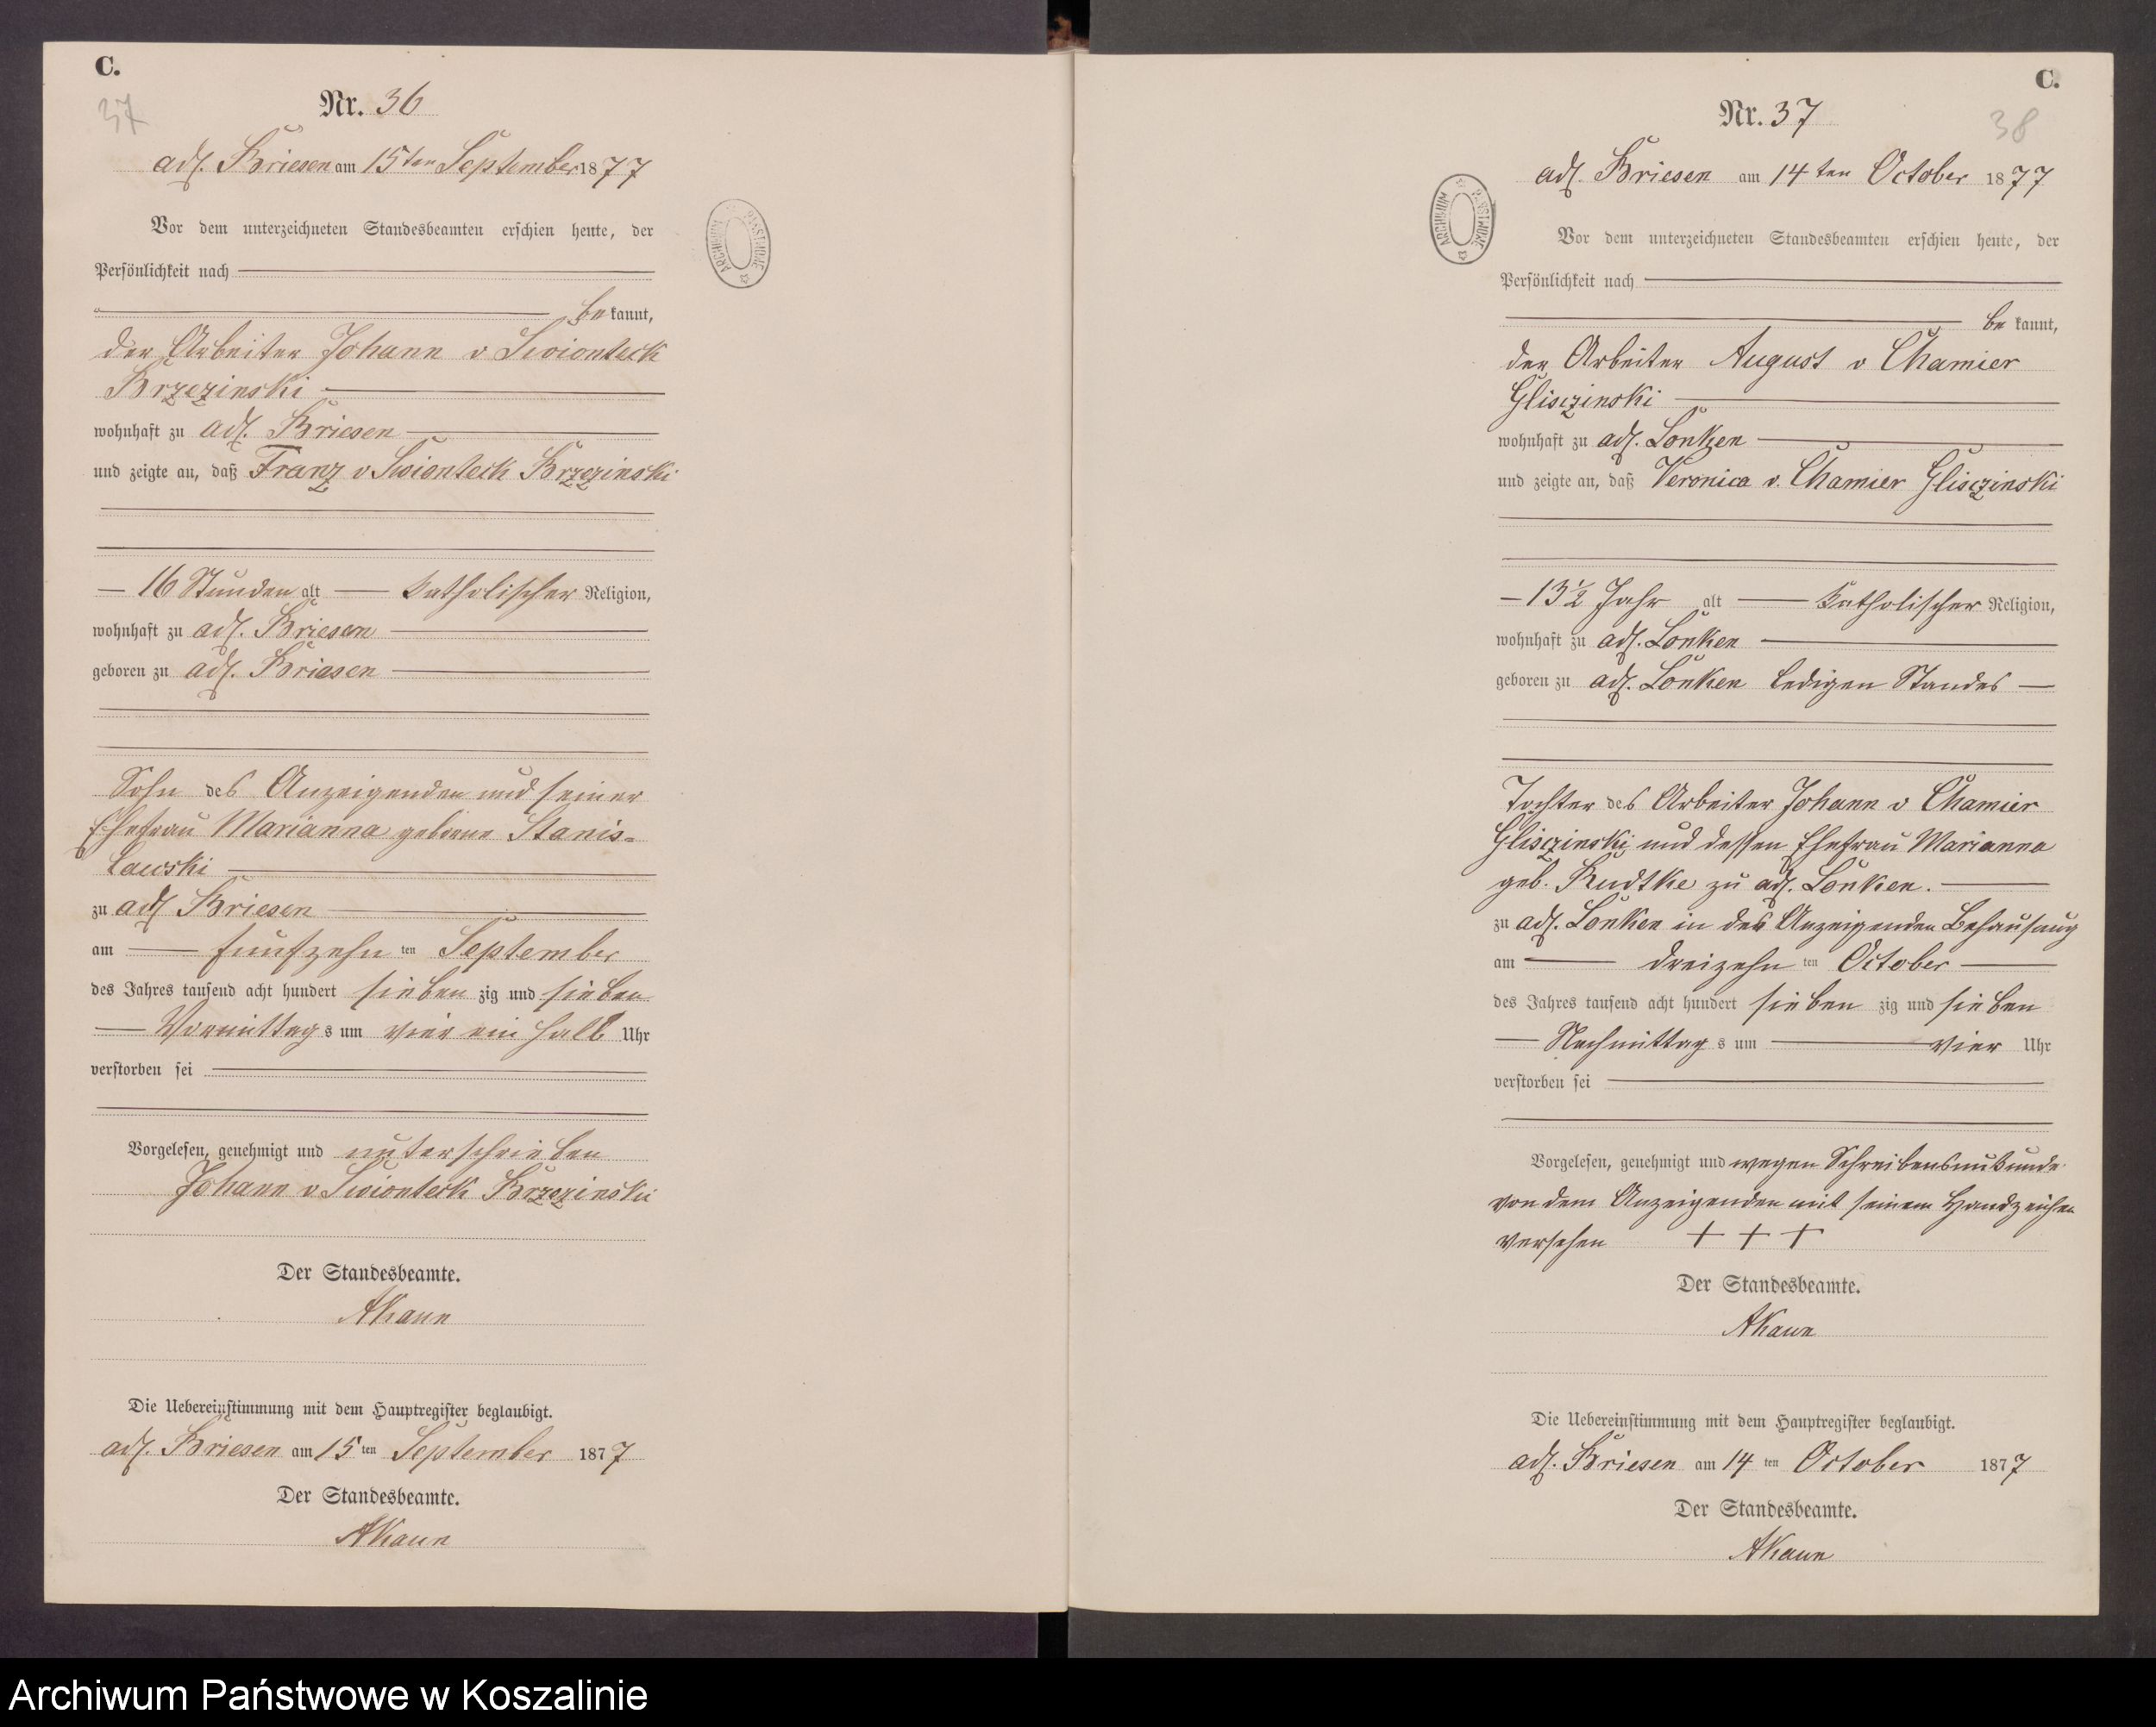 C.
37
Nr. 36
adl. Briesen am 15ten September 1877
Vor dem unterzeichneten Standesbeamten erschien heute, der
Persönlichkeit nach
bekannt,
der Arbeiter Johann v Swionteck
Brzezinski
wohnhaft zu adl. Briesen
und zeigte an, daß Franz v Swionteck Brzezinski
16 Stunden alt katholischer Religion,
wohnhaft zu adl. Briesen
geboren zu adl. Briesen
Sohn des Anzeigenden und seiner
Ehefrau Marianna geborne Stanis-
lawski
zu adl Briesen
am fünfzehn ten September
des Jahres tausend acht hundert sieben zig und sieben
Vormittag s um vier ein halb Uhr
verstorben sei
Vorgelesen, genehmigt und unterschrieben
Johann v Swionteck Brzezinski
Der Standesbeamte.
AKaun
Die Uebereinstimmung mit dem Hauptregister beglaubigt.
adl. Briesen am 15 ten September 1877
Der Standesbeamte.
AKaun
C.
38
Nr. 37
adl. Briesen am 14ten October 1877
ARCHIWUM PAŃSTWOWE
Vor dem unterzeichneten Standesbeamten erschien heute, der
Persönlichkeit nach
bekannt,
der Arbeiter August v Chamier
Glisczinski
wohnhaft zu adl. Lonken
und zeigte an, daß Veronica v. Chamier Glisczinski
13 1/2 Jahr alt katholischer Religion,
wohnhaft zu adl. Lonken
geboren zu adl. Lonken ledigen Standes
Tochter des Arbeiter Johann v Chamier
Glisczinski und dessen Ehefrau Marianna
geb. Rudtke zu adl. Lonken.
zu adl. Lonken in des Anzeigenden Behausung
am dreizehn ten October
des Jahres tausend acht hundert sieben zig und sieben
Nachmittag s um vier Uhr
verstorben sei
Vorgelesen, genehmigt und wegen Schreibensunkunde
von dem Anzeigenden mit seinem Handzeichen
versehen + + +
Der Standesbeamte.
AKaun
Die Uebereinstimmung mit dem Hauptregister beglaubigt.
adl. Briesen am 14 ten October 1877
Der Standesbeamte.
AKaun
Archiwum Państwowe w Koszalinie